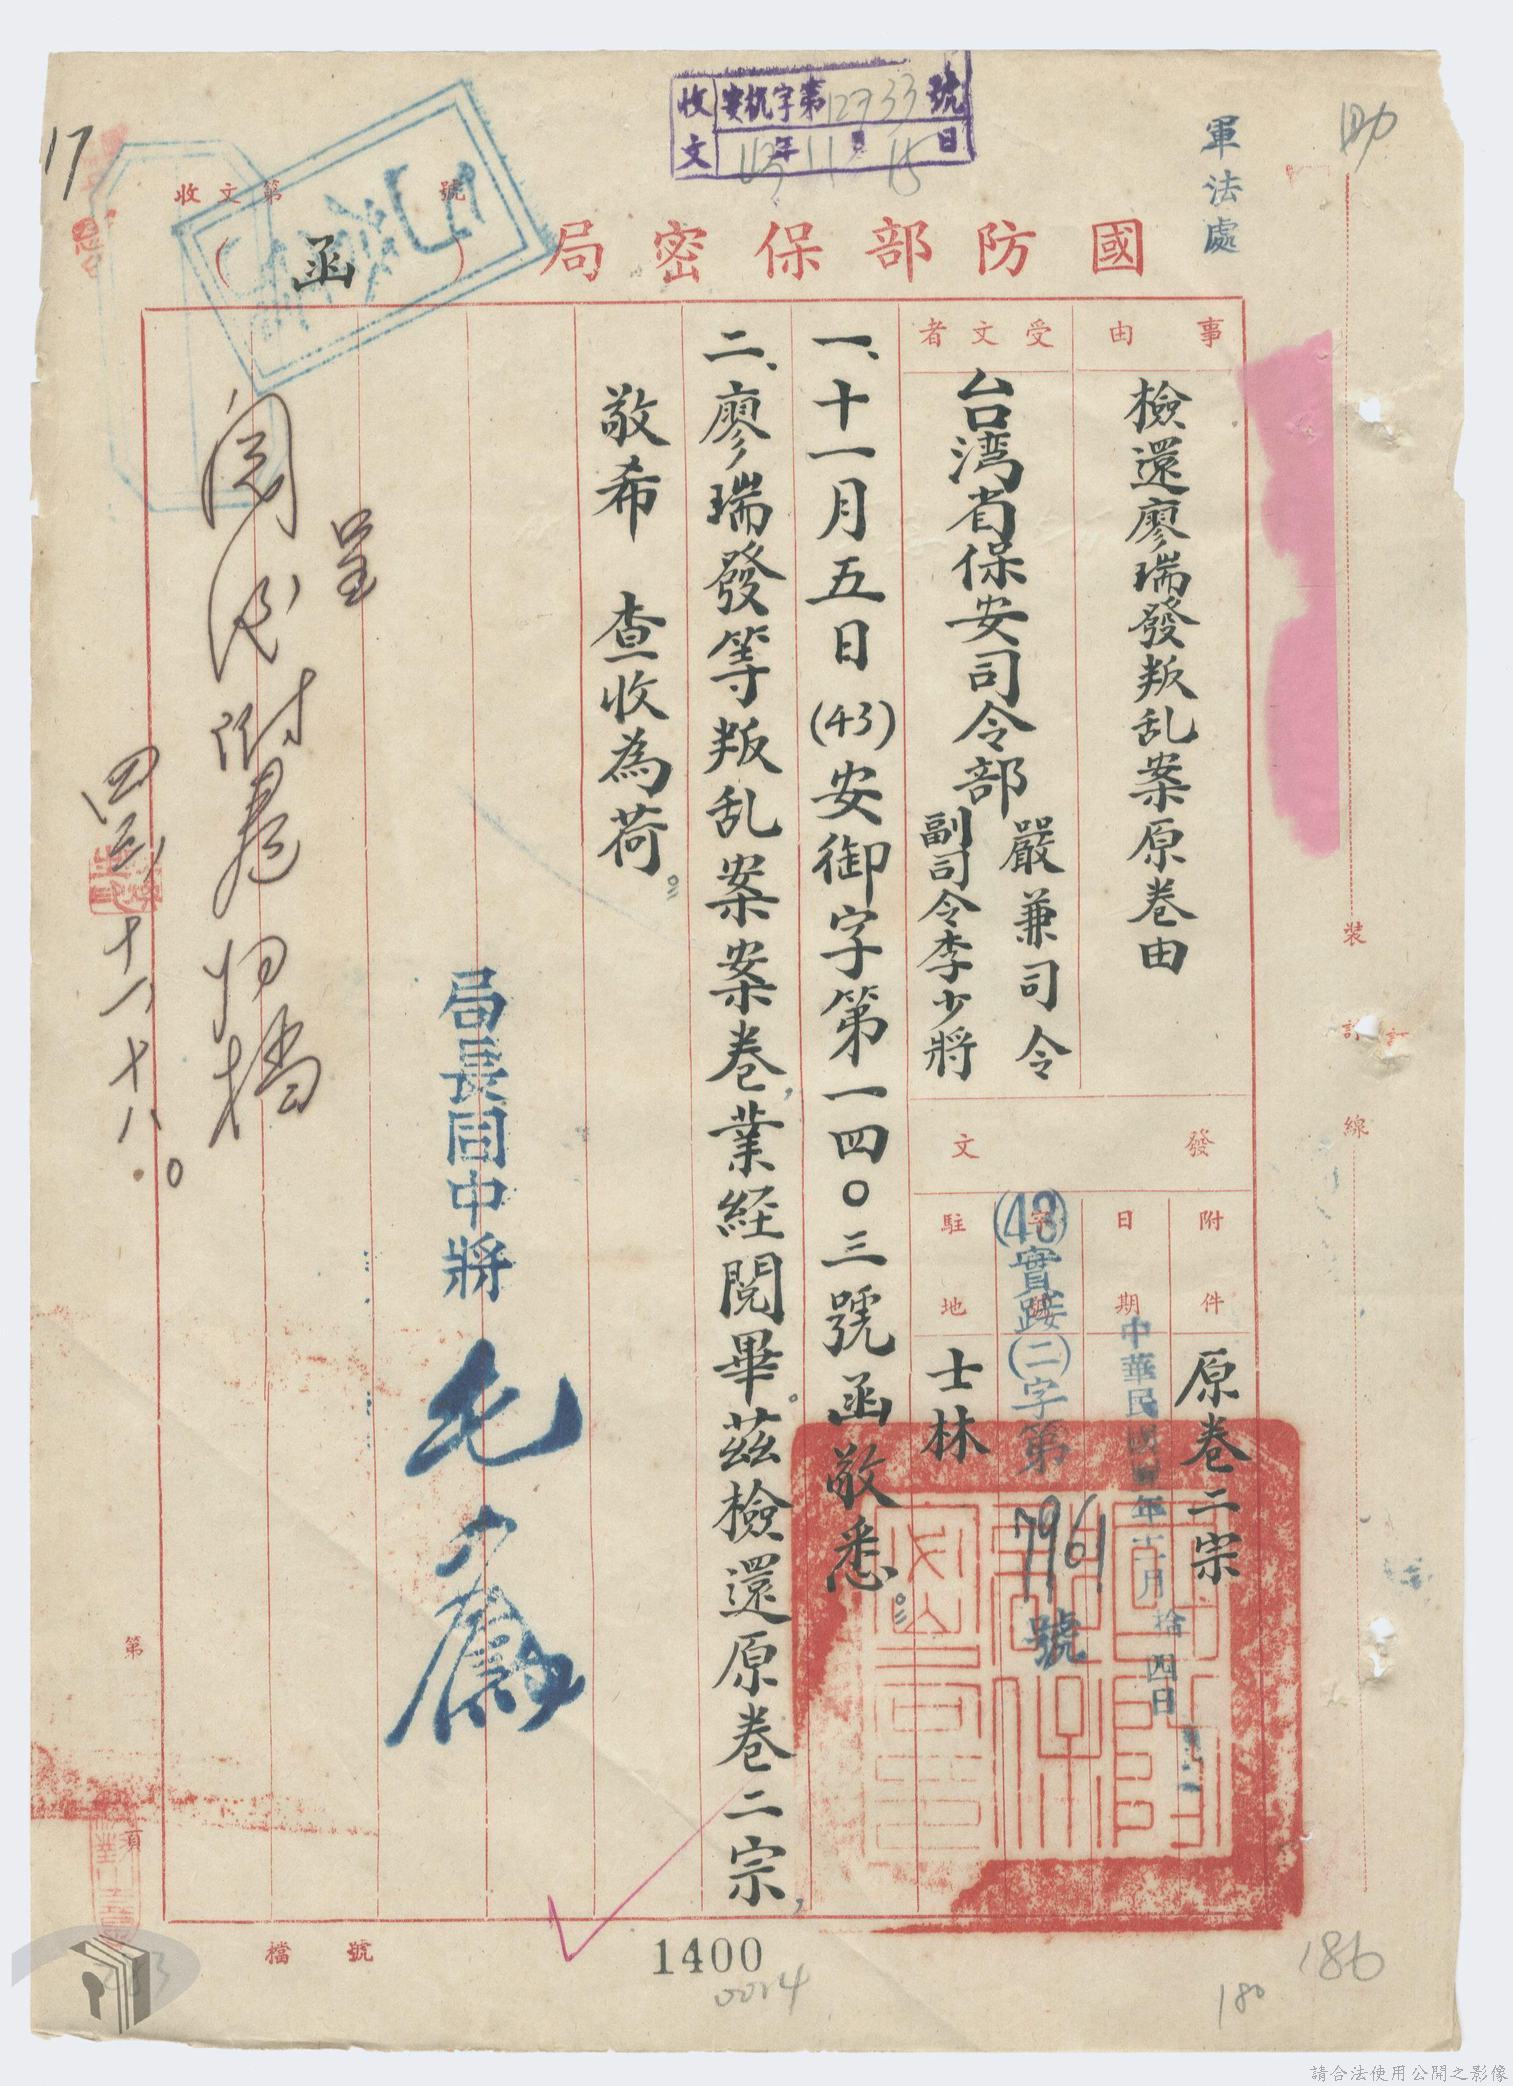 收文 安机字第12733號
43年11月15日
軍法處
17
收文第 號
國防部保密局（函）
事由
檢還廖瑞發叛乱案原卷由
受文者
台湾省保安司令部
嚴兼司令
副司令李少將
發文
附件
原卷二宗
日期
中華民國 年十一月拾四日
字號
(43)實踐(二)字第7961號
駐地
士林
一、十一月五日(43)安御字第一四〇三號函敬悉。
二、廖瑞發等叛乱案案卷，業経閱畢。茲檢還原卷二宗，
敬希 查收為荷。
局長同中將
毛人鳳
呈
閱後附卷归檔
四三、十一、十八。
裝
訂
線
第 頁
檔號
1400
0014
180
186
請合法使用公開之影像